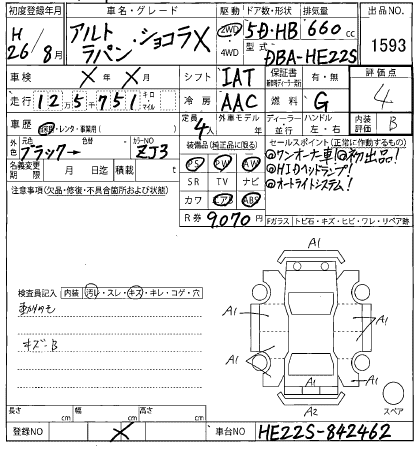 初度登録年月 車名・グレード 駆動 ドア数・形状 排気量 出品NO.
H 26/8月 アルト ラパン・ショコラX 2WD 4WD 5D・HB 660 cc 1593
型式 DBA-HE22S
車検 X年 X月 シフト IAT 保証書 有・無 評価点
走行 12万5千751 キロ マイル 冷房 AAC 燃料 G 4
車歴 自家用・レンタ・事業用( ) 定員 4人 外車モデル 年 ディーラー 並行 ハンドル 左・右 内装評価 B
外色 元色 ブラック→ 色替 カラーNO ZJ3
装備品(純正品に限る) セールスポイント(正常に作動するもの)
名義変更期限 月 日迄 積載 t
PS PW AW ◎ワンオーナー車!◎初出品!
SR TV ナビ ◎HIDヘッドランプ!
カワ エアB ABS ◎オートライトシステム!
注意事項(欠品・修復・不具合箇所および状態)
R券 9,070円 Fガラス トビ石・キズ・ヒビ・ワレ・リペア跡
A1
検査員記入 内装 汚レ・スレ・キズ・キレ・コゲ・穴
A1 A1
キズ・B
A1
A1
A2
スペア
長さ cm 幅 cm 高さ cm
登録NO X 車台NO HE22S-842462